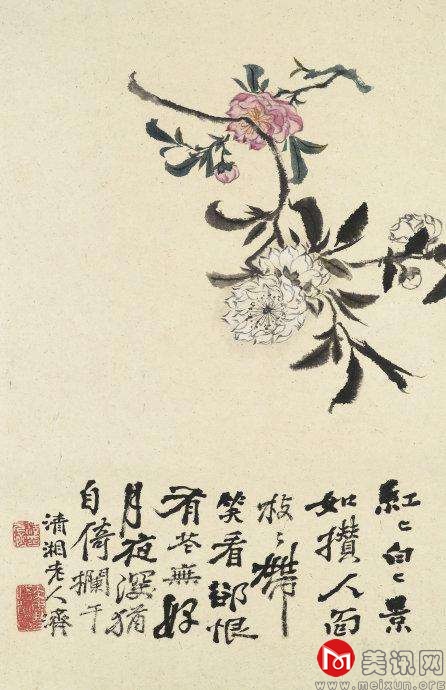 紅〻白〻景
如攢人面
枝〻帶
笑看卻恨
有花無好
月夜深猶
自倚欄干
清湘老人濟
美讯网
www.meixun.org